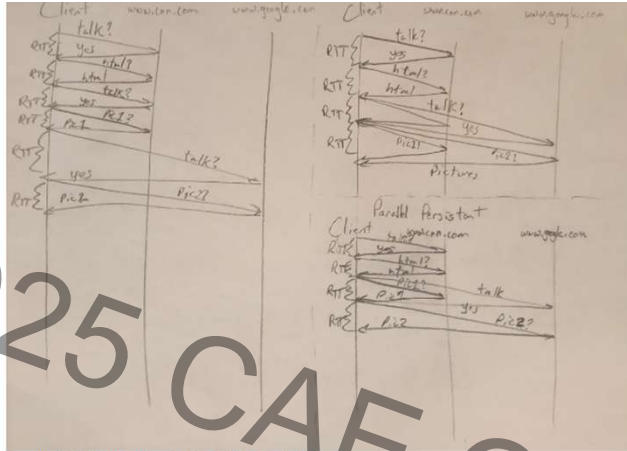 Client www.cnn.com www.google.com
talk?
RTT yes
html?
RTT html
talk?
RTT yes
Pic1?
RTT Pic1
RTT talk?
yes
Pic2?
RTT Pic2
Client www.cnn.com www.google.com
talk?
RTT yes
html?
RTT html
talk?
RTT yes
Pic2?
RTT Pic1?
Pictures
Parallel Persistant
Client www.cnn.com www.google.com
RTT yes
html?
RTT html
Pic1?
talk
RTT Pic1
yes
RTT Pic2 Pic2?
25 CAE